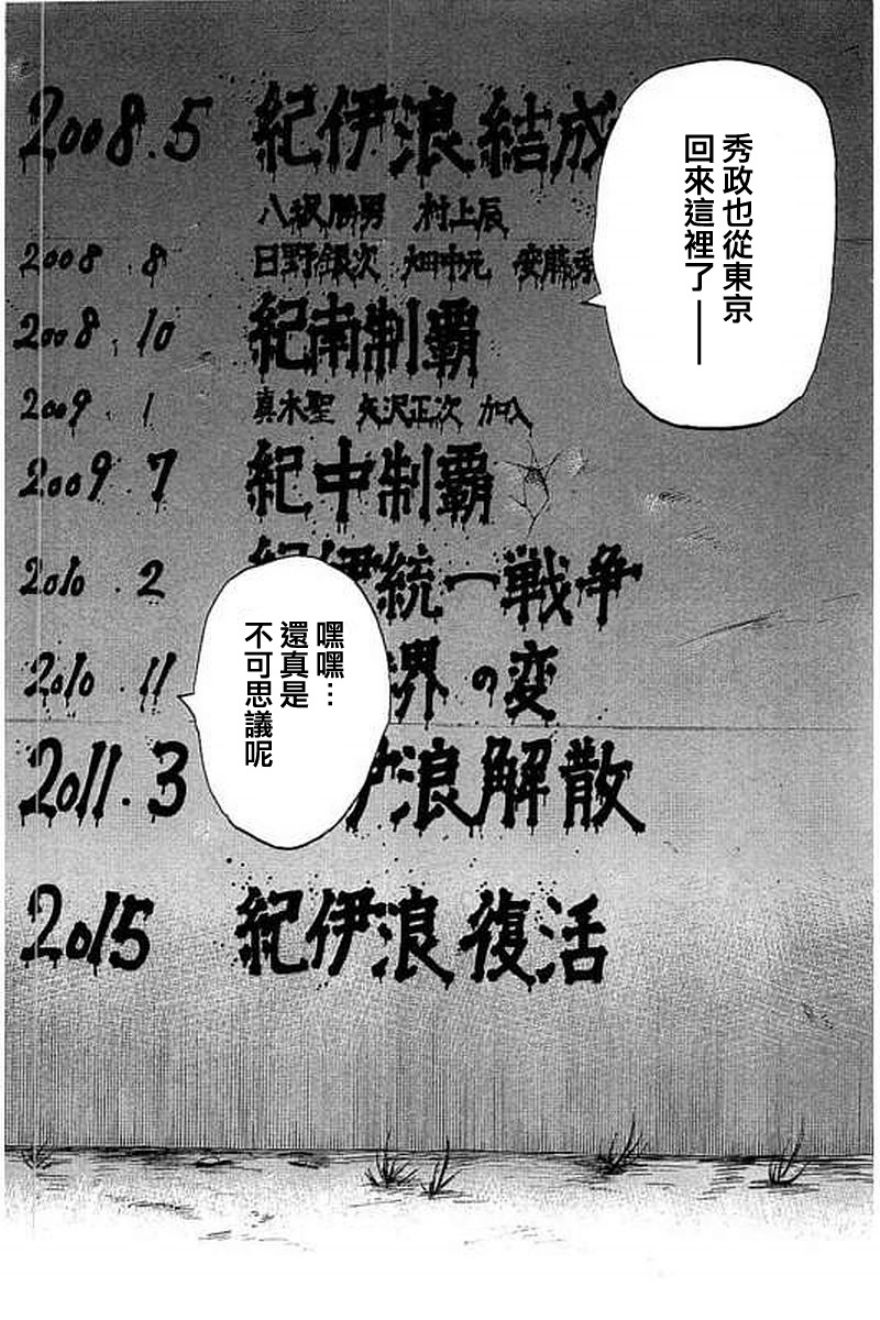 秀政也從東京
回來這裡了——
2008.5 紀伊浪結成
八坂勝男 村上辰
2008.8 日野銀次 畑中元 安藤秀
2008.10 紀南制覇
2009.1 真木聖 矢沢正次 加入
2009.7 紀中制覇
2010.2 紀伊統一戦争
2010.11 堺の変
2011.3 伊浪解散
2015 紀伊浪復活
嘿嘿…
還真是
不可思議呢